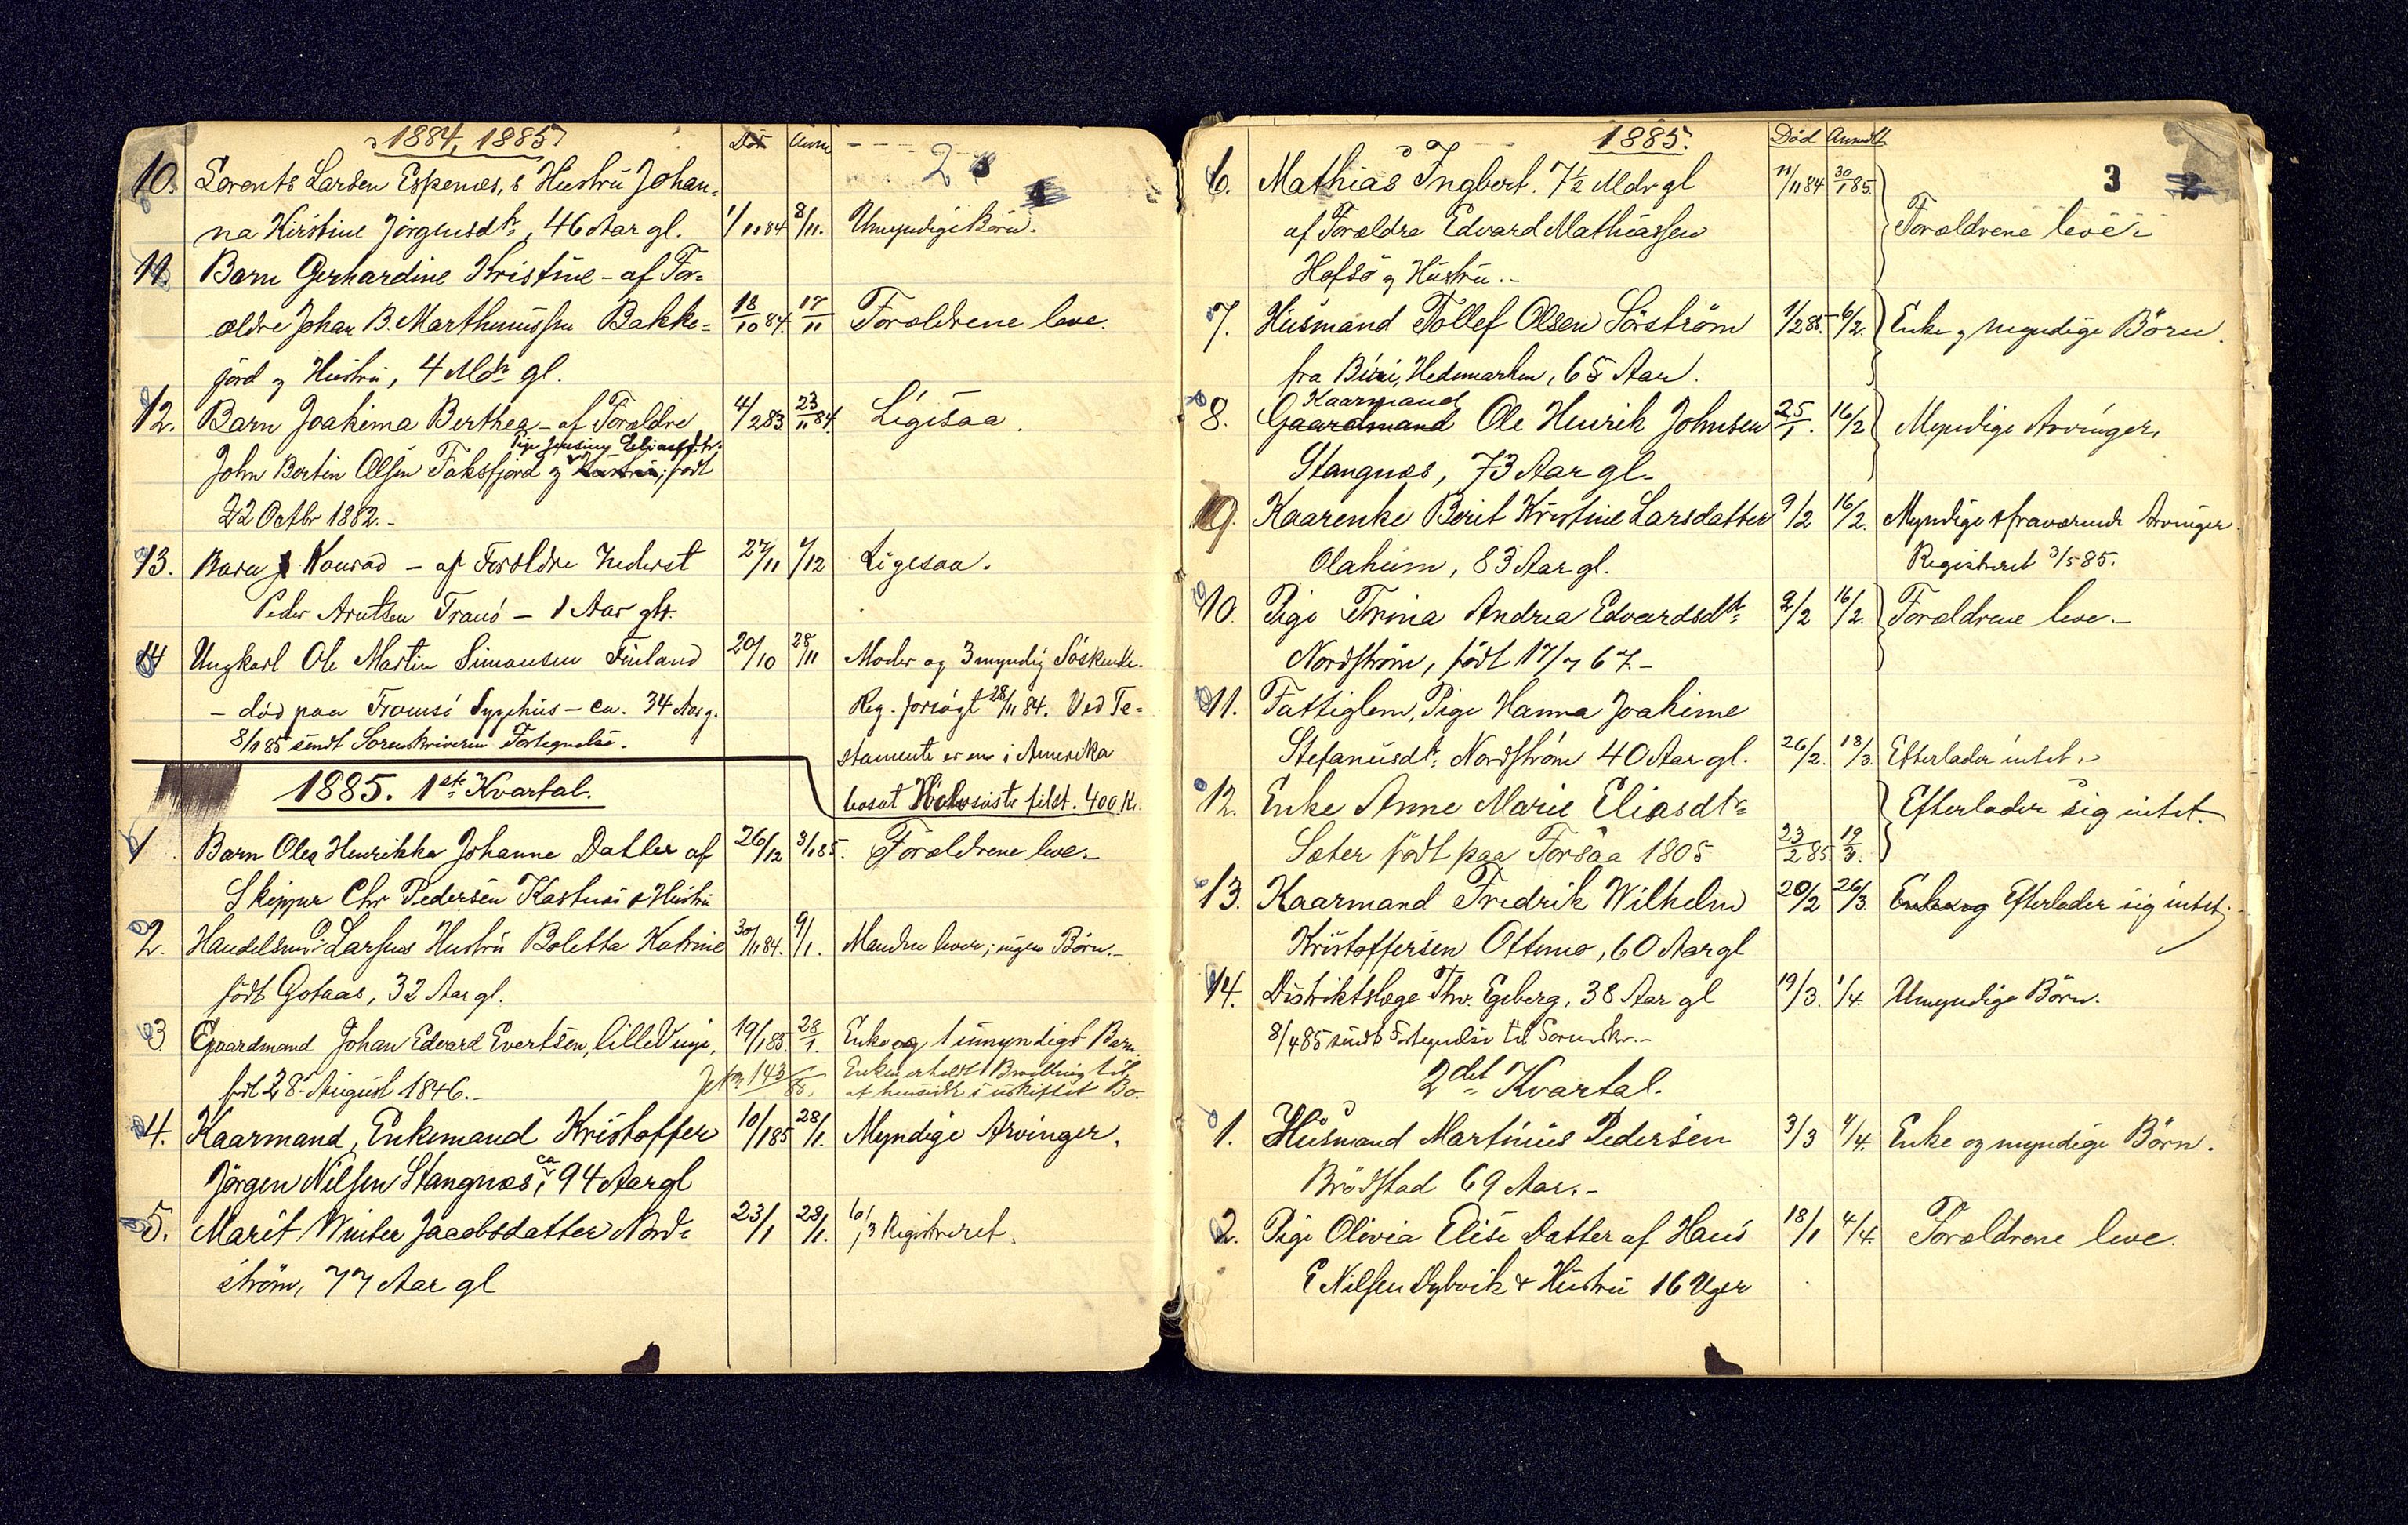 1884, 1885
Død Anm
2
10. Lorents Larsen Espenæs, s Hustru Johan-
na Kirstine Jörgensdtr, 46 Aar gl. 1/11 84 8/11. Umyndige Börn.
11. Barn Gerhardine Kristine - af For-
ældre Johan B. Marthinussen Bakke- 18/10 84. 17/11 Forældrene leve.
jord og Hustru, 4 Mdr gl.
12. Barn Joakima Berthea - af Forældre 4/2 83. 23/11 84. Ligesaa.
Pige Jensine Eliasdtr.
John Bertin Olsen Faksfjord og Hustru, født
22 Octbr 1882.-
13. Barn Konrad - af Forældre Inderst 27/11 1/12 Ligesaa.
Peder Arntsen Tranö - 1 Aar gl.
14 Ungkarl Ole Martin Simonsen Finland 20/10 28/11 Moder og 3 myndig Söskende.
- död paa Tromsö Sygehus - ca. 34 Aar g. Reg. forsögt 28/11 84. Ved Te-
8/1 85 sendt Sorenskriveren Fortegnelse. stamente er en i Amerika
bosat Halvsöster tilst. 400 Kr.
1885. 1ste Kvartal.
1. Barn Olea Henrikka Johanne Datter af 26/12 3/1 85. Forældrene leve.-
Skipper Chr Pedersen Kastnes & Hustru
2. Handelsmd Larsens Hustru Boletta Katrine 30/11 84. 9/1. Manden lever; ingen Börn.-
födt Gotaas, 32 Aar gl.
3. Gaardmand Johan Edvard Evertsen, lille Vinje, 19/1 85. 28/1. Enke og 1 umyndigt Barn.
födt 28 August 1846.- Jr No 143/85. Enken erholdt Bevilling til
at hensidde i uskiftet Bo.
4. Kaarmand, Enkemand Kristoffer 10/1 85 28/1. Myndige Arvinger.
Jörgen Nilsen Stangnæs, ca 94 Aar gl
5. Marit Winter Jacobsdatter Nord- 23/1 28/1. 10/3 Registreret.
ström, 77 Aar gl
1885.
Död Anmdt
3 2
6. Mathias Ingbert. 7½ Mdr gl 11/11 84 30/1 85.
af Forældre Edvard Mathiassen Forældrene leve.
Hofsö og Hustru.-
7. Husmand Tollef Olsen Sörström 1/2 85. 6/2. Enke og myndige Börn.
fra Biri, Hedemarken, 65 Aar.
Kaarmand
8. Gaardmand Ole Henrik Johnsen 25/1. 16/2 Myndige Arvinger,
Stangnæs, 73 Aar gl.
9. Kaarenke Berit Kristine Larsdatter 9/2 16/2. Myndige & fraværende Arvinger.
Olaheim, 83 Aar gl. Registreret 3/5 85.
10. Pige Trina Andrea Edvardsdtr 2/2 16/2. Forældrene leve.-
Nordström, född 17/7 67.-
11. Fattiglem, Pige Hanna Joakime
Stefanusdtr Nordström 40 Aar gl. 26/2. 18/3. Efterlader intet.
12. Enke Anne Marie Eliasdtr Efterlader sig intet.
Sæter födt paa Forsaa 1805 23/2 85 19/3.
13. Kaarmand Fredrik Wilhelm 20/2 26/3. Enke og Efterlader sig intet.
Kristoffersen Ottemo, 60 Aar gl
14. Distriktslæge Thv. Egeberg, 38 Aar gl 19/3. 1/4. Umyndige Börn.
8/4 85 sendt Fortegnelse til Sorenskr.-
2det Kvartal.
1. Husmand Martinus Pedersen 3/3 4/4. Enke og myndige Börn.
Brödstad 69 Aar.-
2. Pige Olivia Elise Datter af Hans 18/1 4/4. Forældrene leve.
E Nilsen Dybvik & Hustru 16 Uger